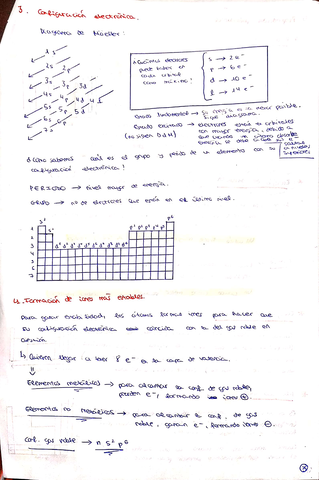 3. Configuración electrónica.
Diagrama de Moeller:
1s
2s 2p
3s 3p 3d
4s 4p 4d
5s 5p 5d
6s 6p
7s
¿Cuántos electrones
puede haber en
cada orbital
como máximo?
s → 2 e-
p → 6 e-
d → 10 e-
f → 14 e-
Estado fundamental → su energía es la menor posible.
Sigue diagrama.
Estado excitado → electrones están en orbitales
con mayor energía, debido a
(no siguen D.d.M)
¿Cómo sabemos cuál es el grupo y periodo de un elemento con su
configuración electrónica?
PERIODO → Nivel mayor de energía.
GRUPO → nº de electrones que hay en el último nivel.
4. Formación de iones más estables.
Para ganar estabilidad, los átomos forman iones para hacer que
su configuración electrónica coincida con la del gas noble en
cuestión
↳ Quieren llegar a tener 8 e- en su capa de valencia.
Elementos metálicos → para alcanzar la conf. de gas noble,
pierden e-, formando iones ⊕.
Elementos no metálicos → para alcanzar la conf. de gas
noble, ganan e-, formando iones ⊖.
conf. gas noble → n s² p⁶